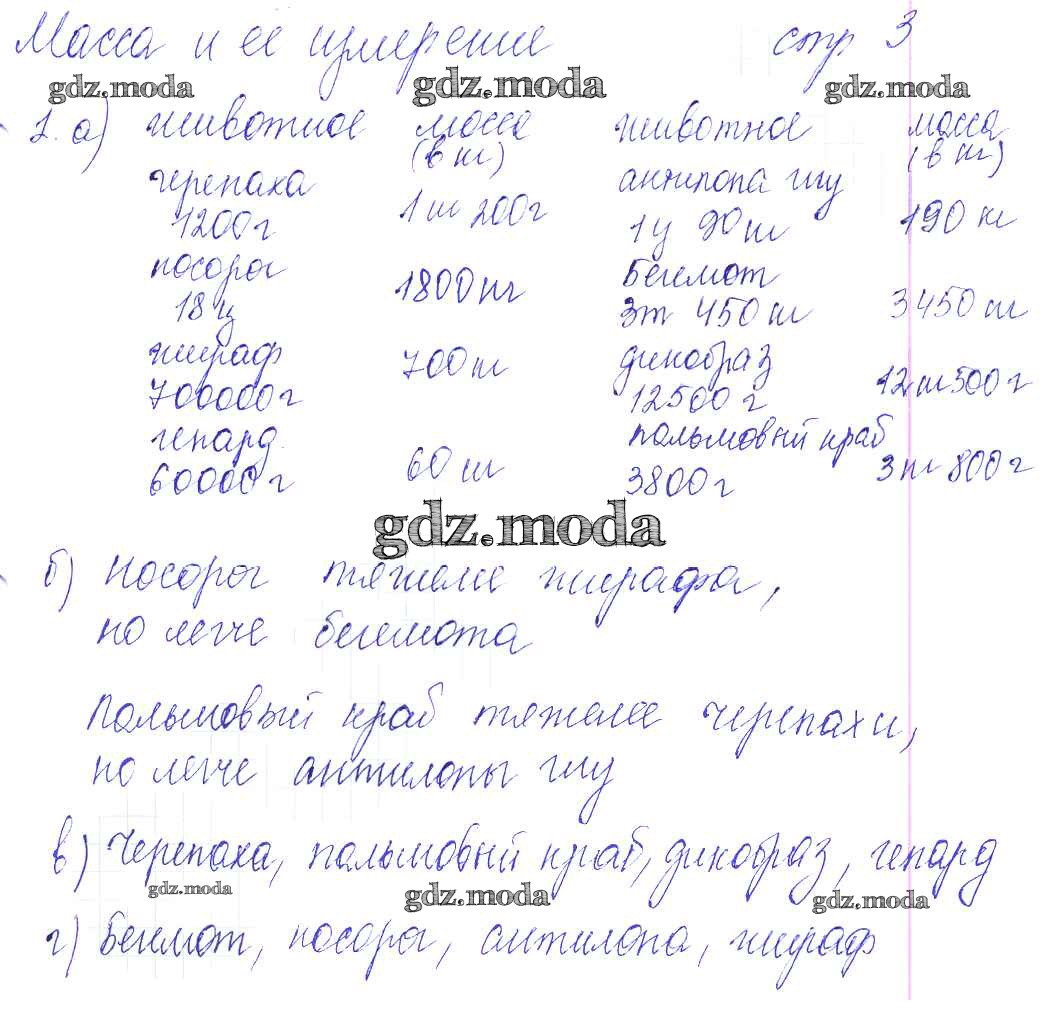 Масса и её измерение стр 3
gdz.moda gdz.moda gdz.moda
1. а) животное масса животное масса
(в кг) (в кг)
черепаха антилопа гну
1200г 1 кг 200г 1ц 90 кг 190 кг
носорог Бегемот
18 ц 1800 кг 3т 450 кг 3450 кг
жираф 700 кг дикобраз
700000г 12500 г 12 кг 500 г
гепард пальмовый краб
60000 г 60 кг 3800г 3 кг 800 г
gdz.moda
б) Носорог тяжелее жирафа,
но легче бегемота
Пальмовый краб тяжелее черепахи,
но легче антилопы гну
в) Черепаха, пальмовый краб, дикобраз, гепард
gdz.moda gdz.moda gdz.moda
г) Бегемот, носорог, антилопа, жираф